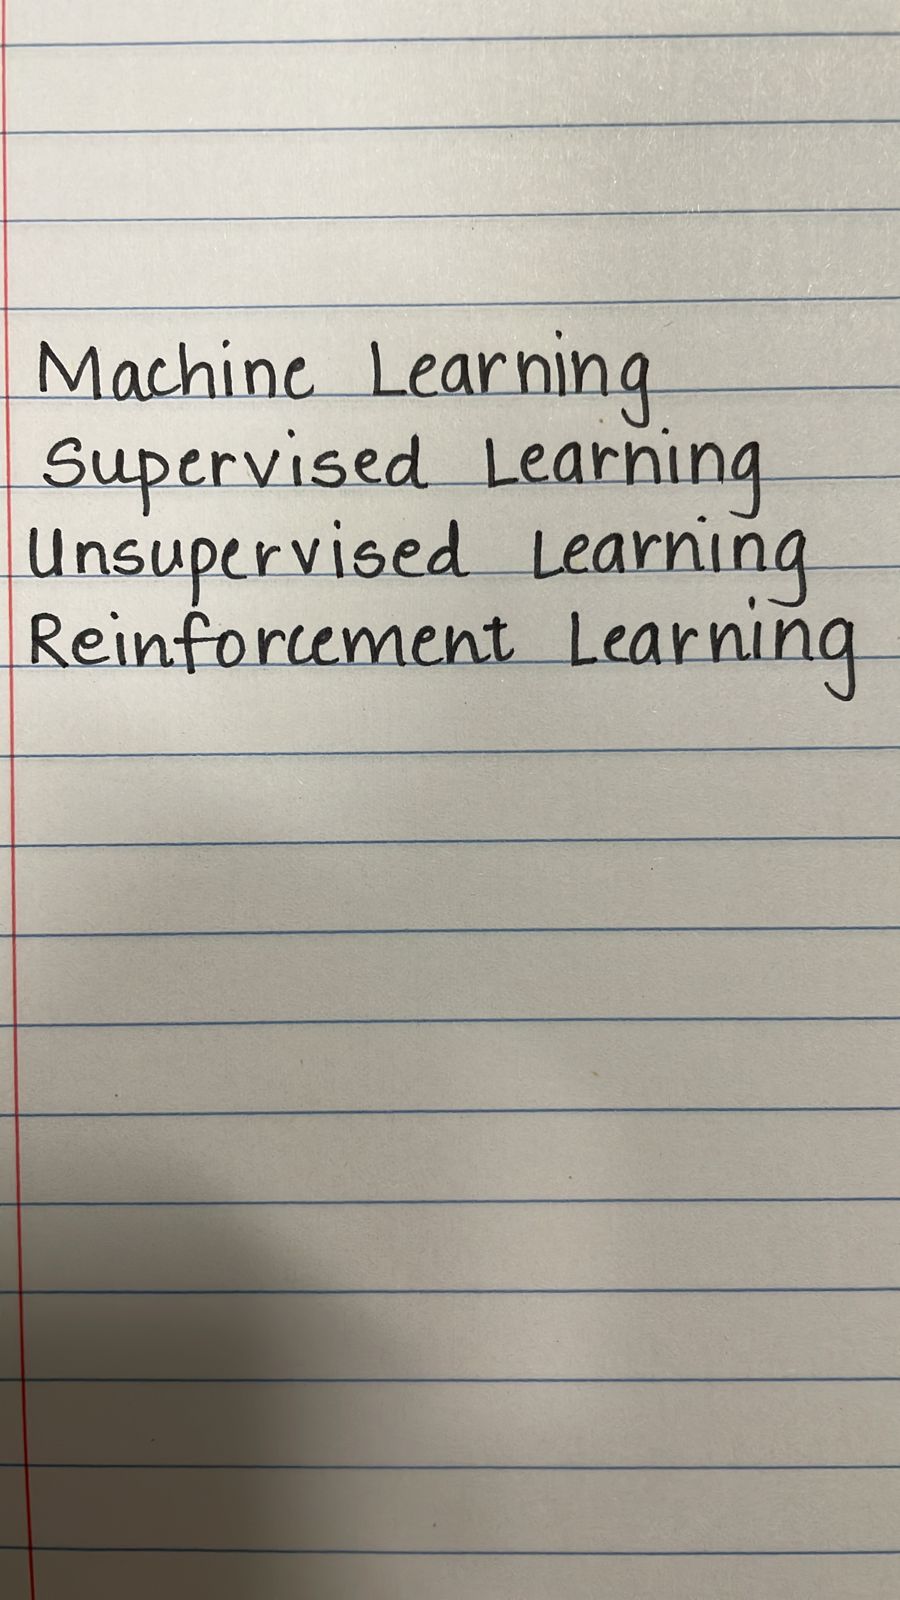 Machine Learning
Supervised Learning
Unsupervised Learning
Reinforcement Learning